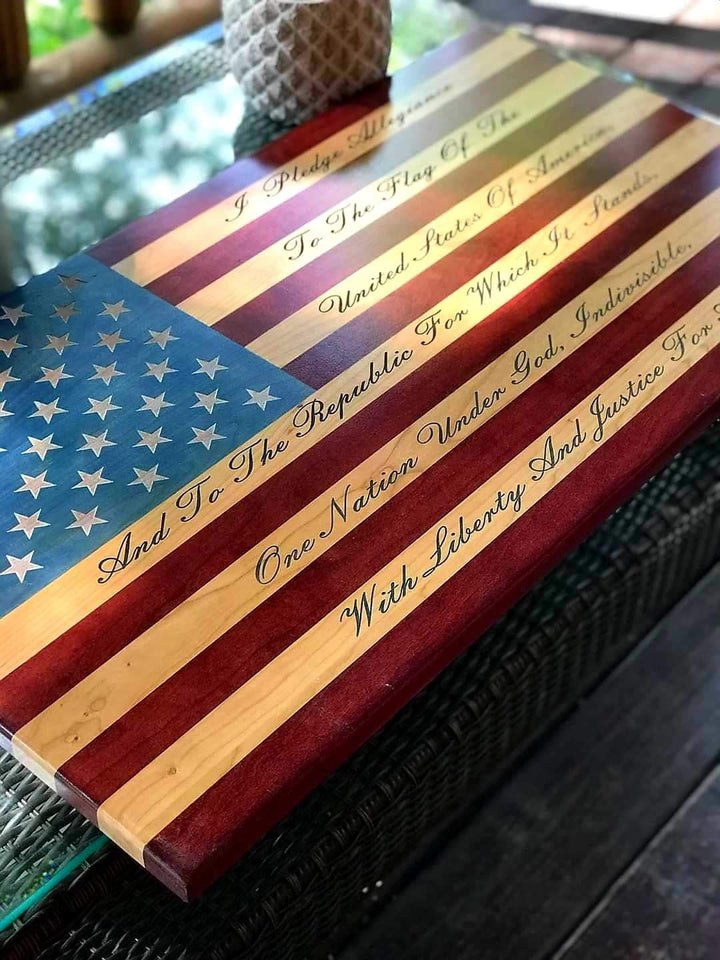 I Pledge Allegiance
To The Flag Of The
United States Of America,
And To The Republic For Which It Stands,
One Nation Under God, Indivisible,
With Liberty And Justice For